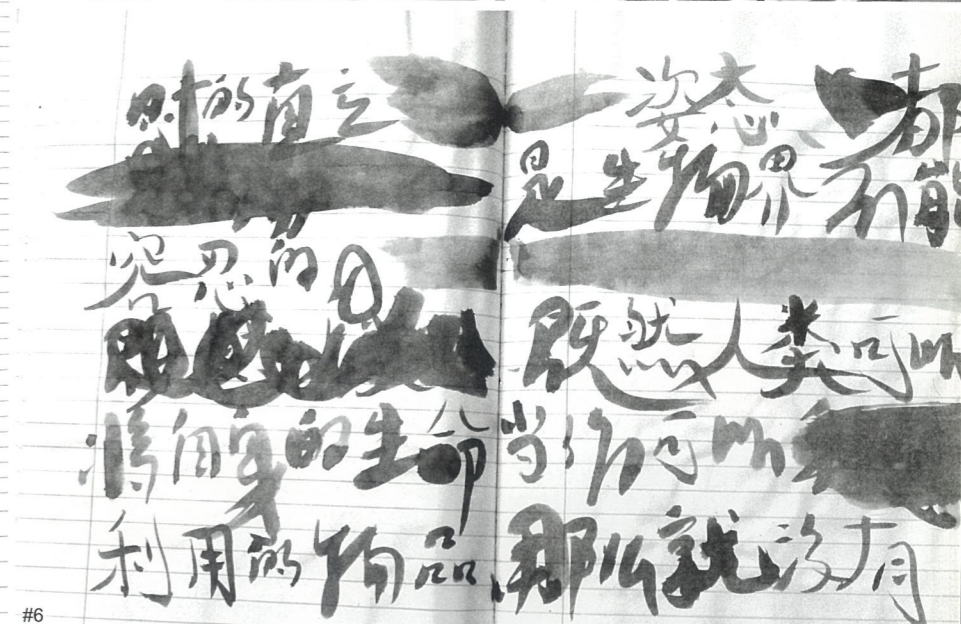 时的直立 姿态 都
是生物界不能
容忍的。
既然人类可以
将自身的生命当作可以
利用的物品,那么就没有
#6